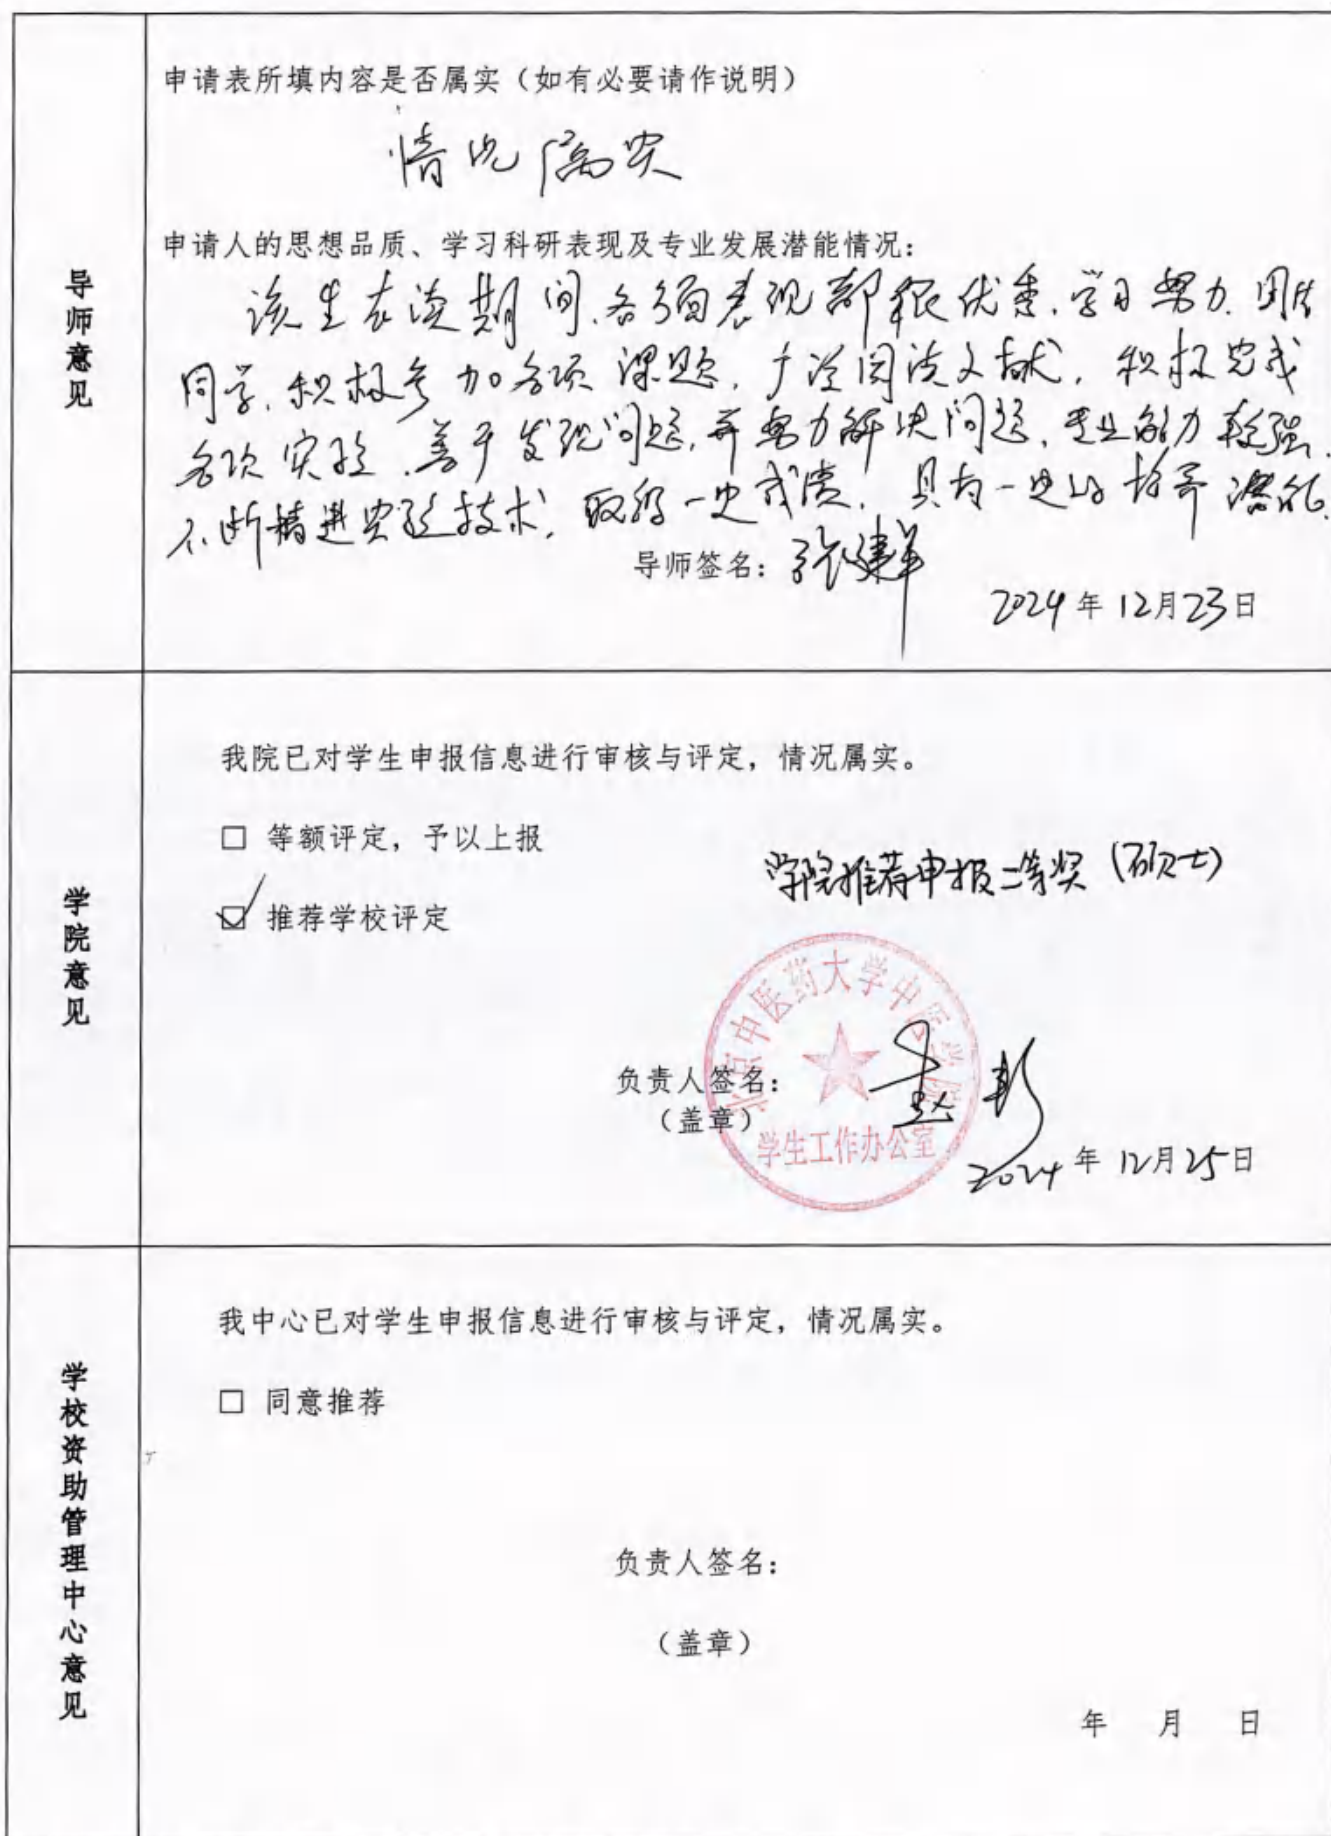 导师意见
申请表所填内容是否属实（如有必要请作说明）
情况属实
申请人的思想品质、学习科研表现及专业发展潜能情况：
该生在读期间,各方面表现都很优秀,学习努力,团结
同学,积极参加各项课题,广泛阅读文献,积极完成
各项实验,善于发现问题,并努力解决问题,专业能力较强,
不断精进实验技术,取得一定成绩,具有一定的培养潜能.
导师签名：
2024年12月23日
学院意见
我院已对学生申报信息进行审核与评定，情况属实。
□ 等额评定，予以上报
学院推荐申报二等奖（硕士）
☑ 推荐学校评定
北京中医药大学中医学院
负责人签名：赵彭
（盖章）
学生工作办公室
2024年12月25日
学校资助管理中心意见
我中心已对学生申报信息进行审核与评定，情况属实。
□ 同意推荐
负责人签名：
（盖章）
年 月 日